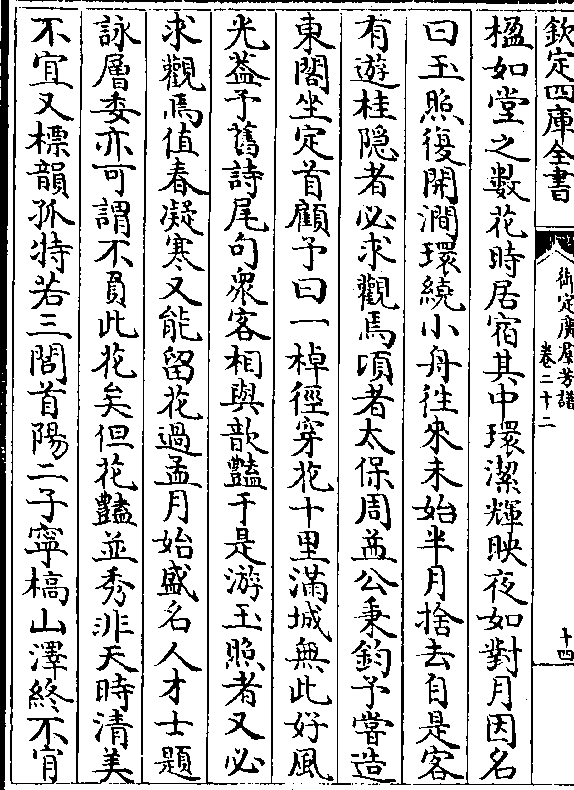 欽定四庫全書
御定廣羣芳譜
卷二十二
十四
楹如堂之數花時居宿其中環潔輝映夜如對月因名
曰玉照復開澗環繞小舟徃來未始半月捨去自是客
有遊桂隠者必求觀焉頃者太保周益公秉鈞予嘗造
東閣坐定首顧予曰一棹徑穿花十里滿城無此好風
光葢予舊詩尾句衆客相與歆豔于是游玉照者又必
求觀焉值春凝寒又能留花過孟月始盛名人才士題
詠層委亦可謂不負此花矣但花豔並秀非天時清美
不宜又標韻孤特若三閭首陽二子寧槁山澤終不肎